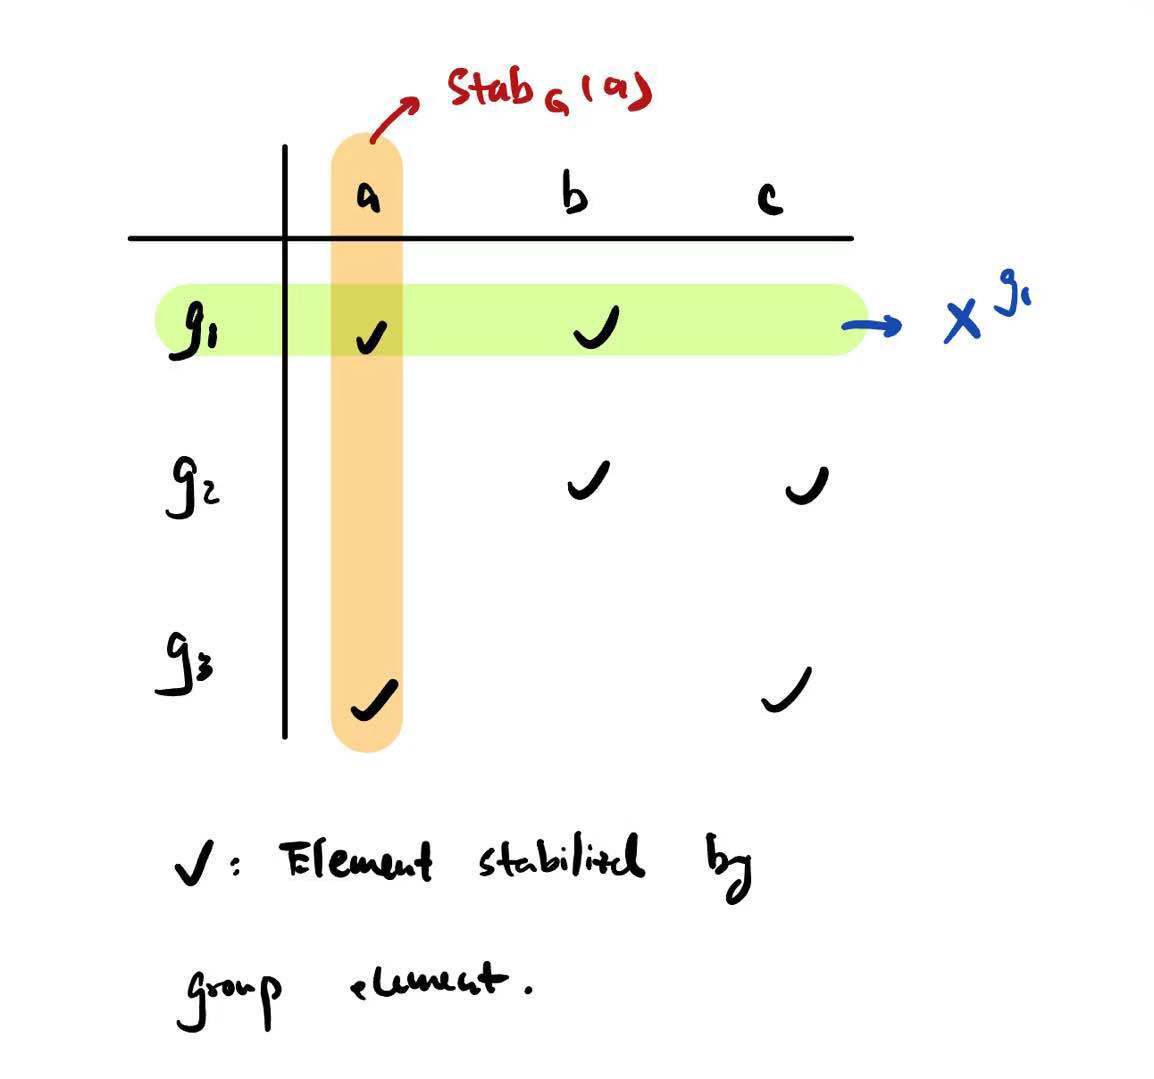 Stab_G(a)
a b c
g₁ ✓ ✓ X^g₁
g₂ ✓ ✓
g₃ ✓ ✓
✓: Element stabilized by
group element.